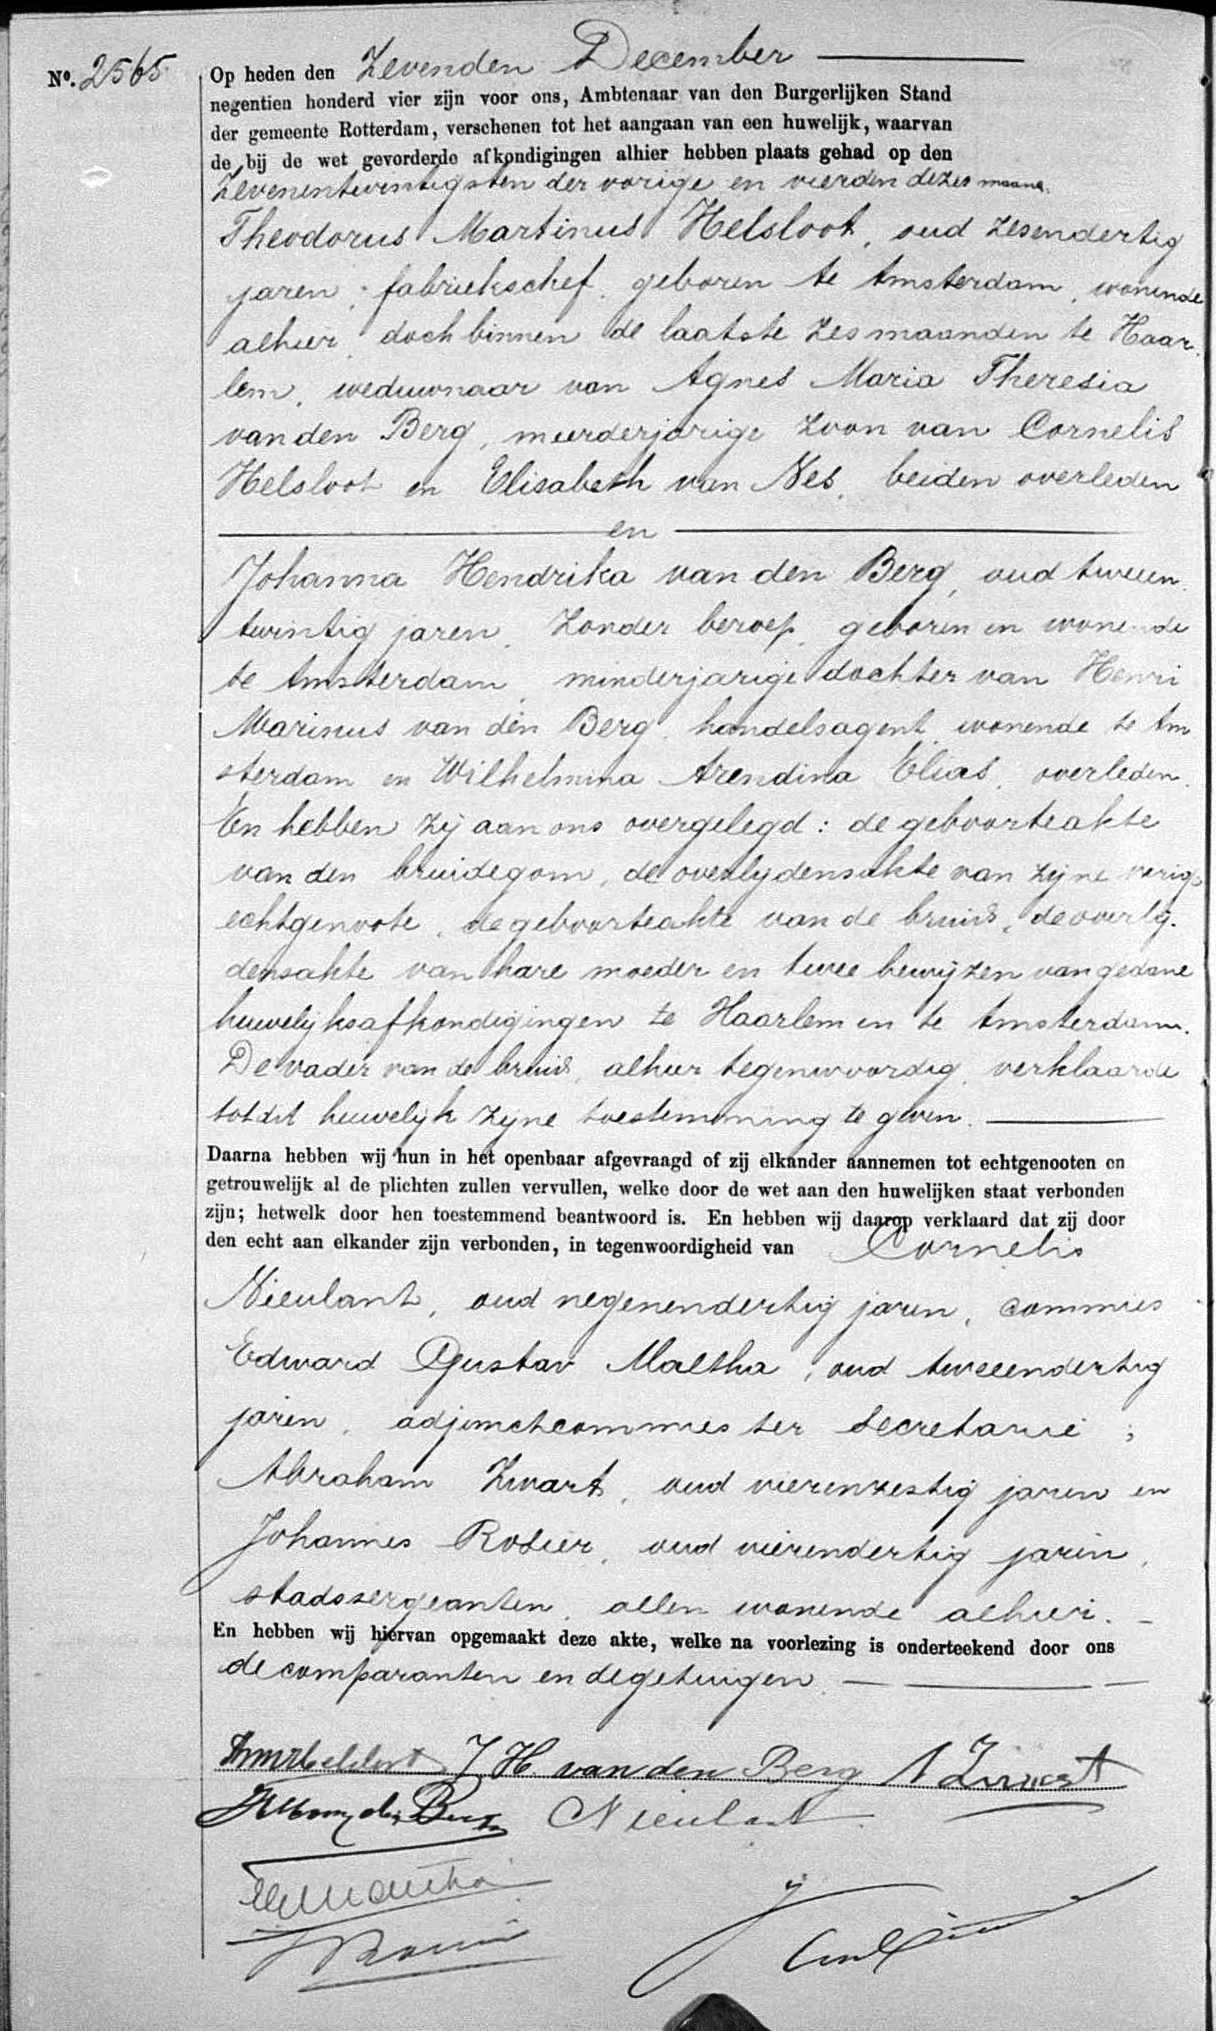 Nº. 2565
Op heden den Zevenden December
negentien honderd vier zijn voor ons, Ambtenaar van den Burgerlijken Stand
der gemeente Rotterdam, verschenen tot het aangaan van een huwelijk, waarvan
de bij de wet gevorderde afkondigingen alhier hebben plaats gehad op den
Zevenentwintigsten der vorige en vierden dezer maand.
Theodorus Martinus Helsloot, oud zesendertig
jaren, fabriekschef, geboren te Amsterdam, wonende
alhier, doch binnen de laatste zes maanden te Haar-
lem, weduwnaar van Agnes Maria Theresia
van den Berg, meerderjarige zoon van Cornelis
Helsloot en Elisabeth van Nes, beiden overleden
en
Johanna Hendrika van den Berg, oud tweeen
twintig jaren, zonder beroep, geboren en wonende
te Amsterdam, minderjarige dochter van Henri
Marinus van den Berg, handelsagent, wonende te Am
sterdam en Wilhelmina Arendina Elias, overleden.
En hebben zij aan ons overgelegd: de geboorteakte
van den bruidegom, de overlijdensakte van zijne vorige
echtgenoote, de geboorteakte van de bruid, de overlij-
densakte van hare moeder en twee bewijzen van gedane
huwelijksafkondigingen te Haarlem en te Amsterdam.
De vader van de bruid, alhier tegenwoordig, verklaarde
tot dit huwelijk zijne toestemming te geven.
Daarna hebben wij hun in het openbaar afgevraagd of zij elkander aannemen tot echtgenooten en
getrouwelijk al de plichten zullen vervullen, welke door de wet aan den huwelijken staat verbonden
zijn; hetwelk door hen toestemmend beantwoord is. En hebben wij daarop verklaard dat zij door
den echt aan elkander zijn verbonden, in tegenwoordigheid van Cornelis
Nieulant, oud negenendertig jaren, commies
Edward Gustav Maltha, oud tweeendertig
jaren, adjunctcommies ter secretarie;
Abraham Zwart, oud vierenzestig jaren en
Johannes Rosier, oud vierendertig jaren,
stadssergeanten, allen wonende alhier.
En hebben wij hiervan opgemaakt deze akte, welke na voorlezing is onderteekend door ons
de comparanten en de getuigen.
J H van den Berg A Zwart
Nieulant